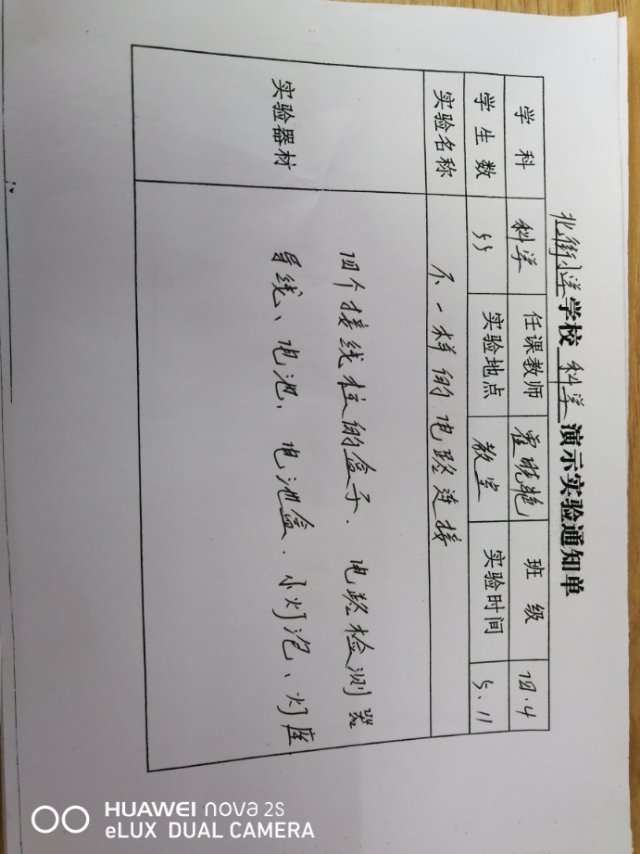 北街小学学校 科学 演示实验通知单
学科 科学 任课教师 霍晓艳 班级 四.4
学生数 55 实验地点 教室 实验时间 5.11
实验名称 不一样的电路连接
实验器材 四个接线柱的盒子、电路检测器
导线、电池、电池盒、小灯泡、灯座
HUAWEI nova 2S
eLUX DUAL CAMERA